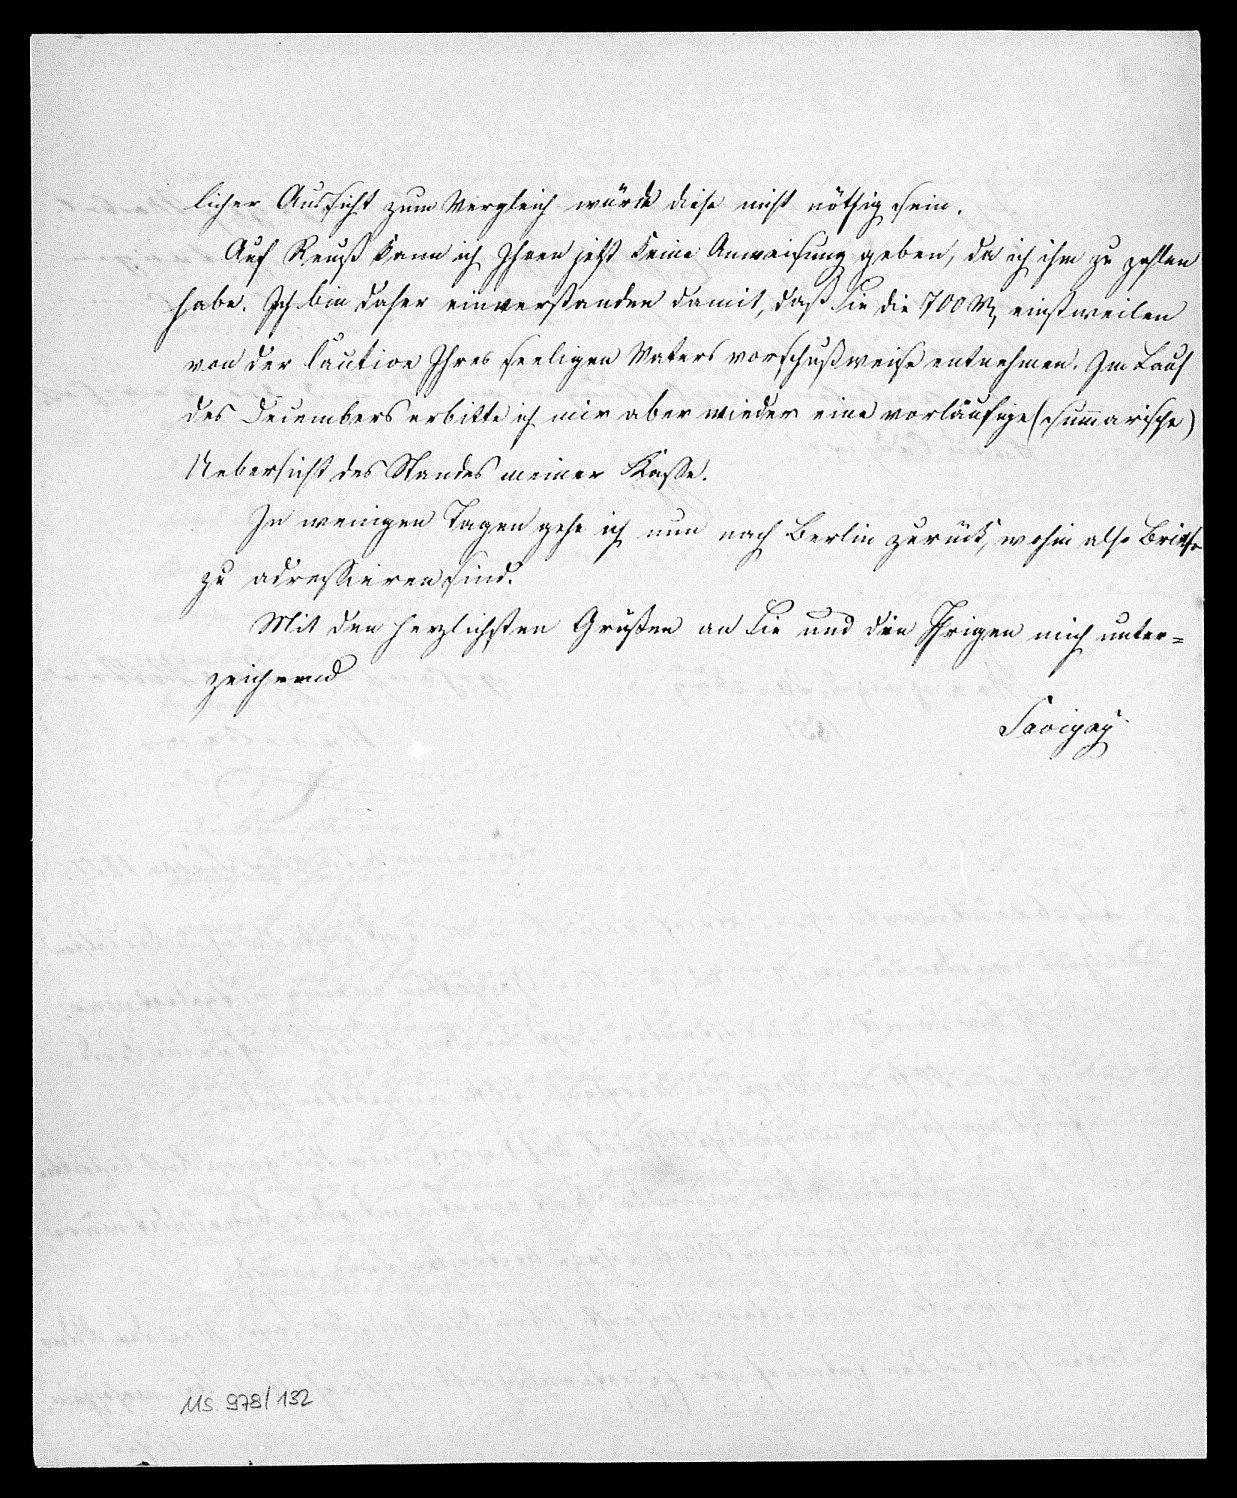 licher Aussicht zum Vergleich würde diese nicht nöthig sein.
Auf Reuß kann ich Ihnen jetzt keine Anweisung geben, da ich ihm zu zahlen
habe. Ich bin daher einverstanden damit, daß Sie die 700 einstweilen
von der Caution Ihres seeligen Vaters vorschußweise entnehmen. Im Lauf
des Decembers erbitte ich mir aber wieder eine vorläufige (summarische)
Uebersicht des Standes meiner Kasse.
In wenigen Tagen gehe ich nun nach Berlin zurück, wohin also Briefe
zu adressieren sind.
Mit den herzlichsten Grüßen an Sie und die Ihrigen mich unter=
zeichnend
Savigny
MS. 978/132